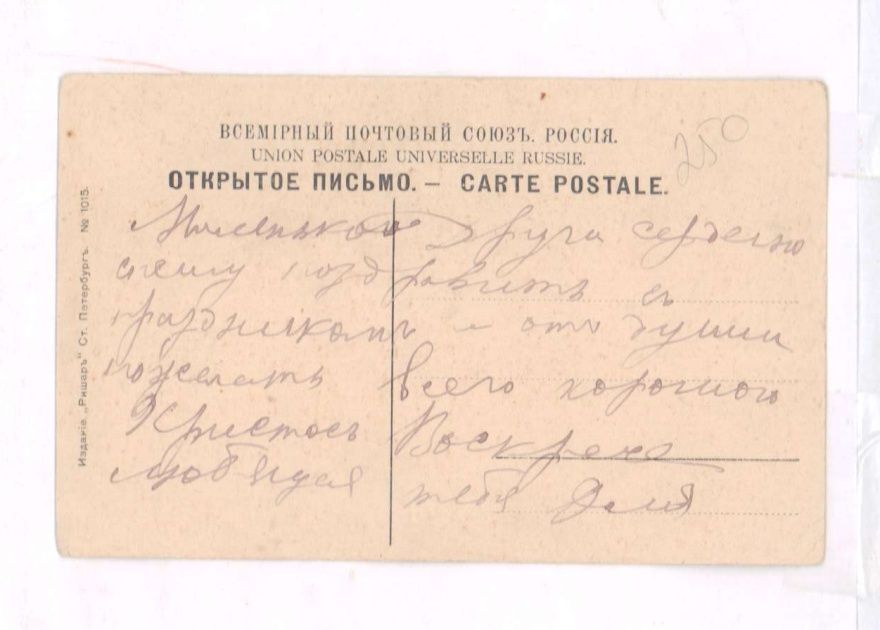 ВСЕМІРНЫЙ ПОЧТОВЫЙ СОЮЗЪ. РОССІЯ.
UNION POSTALE UNIVERSELLE RUSSIE.
ОТКРЫТОЕ ПИСЬМО. — CARTE POSTALE.
250
Изданіе „Ришаръ" Ст. Петербургъ. № 1015.
друга сердечно
спешу поздравить съ
праздникомъ и отъ души
пожелать всего хорошого
Христосъ Воскресе
любящая тебя